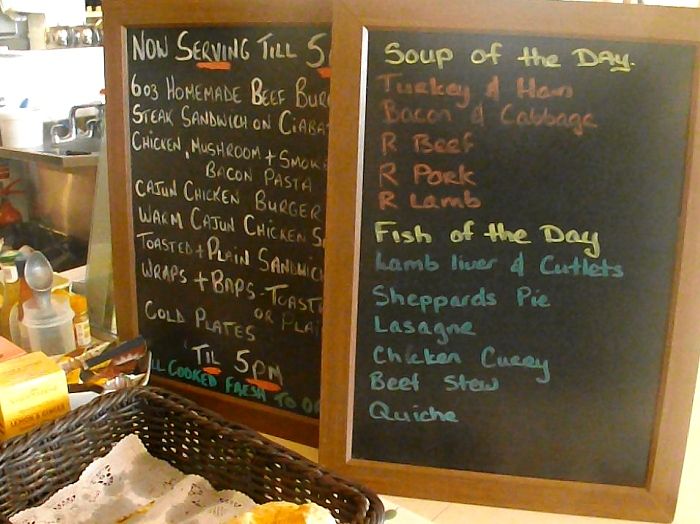 NOW SERVING TILL 5
6oz HOMEMADE BEEF BUR
STEAK SANDWICH ON CIABA
CHICKEN, MUSHROOM + SMOK
BACON PASTA
CAJUN CHICKEN BURGER
WARM CAJUN CHICKEN S
TOASTED + PLAIN SANDWIC
WRAPS + BAPS - TOAST
OR PLAI
COLD PLATES
'TIL 5PM
LL COOKED FRESH TO O
Soup of the Day.
Turkey & Ham
Bacon & Cabbage
R Beef
R Pork
R Lamb
Fish of the Day
Lamb liver & Cutlets
Sheppards Pie
Lasagne
Chicken Curry
Beef Stew
Quiche
LEMON & GINGER